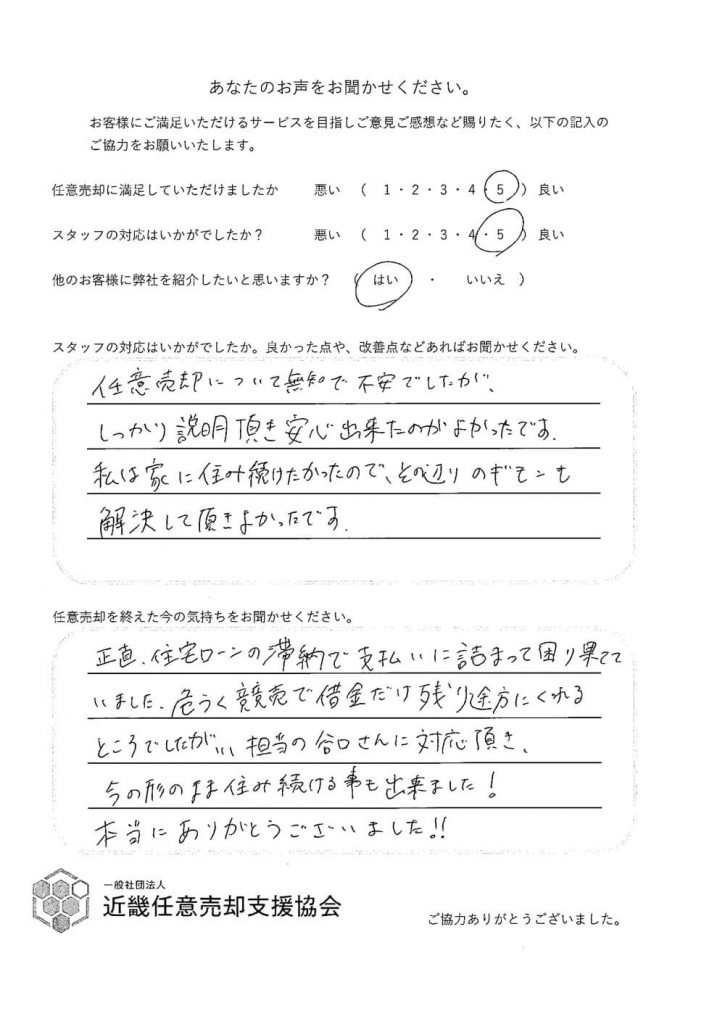 あなたのお声をお聞かせください。
お客様にご満足いただけるサービスを目指しご意見ご感想など賜りたく、以下の記入の
ご協力をお願いいたします。
任意売却に満足していただけましたか 悪い ( 1・2・3・4・5 ) 良い
スタッフの対応はいかがでしたか？ 悪い ( 1・2・3・4・5 ) 良い
他のお客様に弊社を紹介したいと思いますか？ ( はい ・ いいえ )
スタッフの対応はいかがでしたか。良かった点や、改善点などあればお聞かせください。
任意売却について無知で不安でしたが、
しっかり説明頂き安心出来たのがよかったです。
私は家に住み続けたかったので、その辺りのギモンも
解決して頂きよかったです。
任意売却を終えた今の気持ちをお聞かせください。
正直、住宅ローンの滞納で支払いに詰まって困り果てて
いました、危うく競売で借金だけ残り途方にくれる
ところでしたが… 担当の谷口さんに対応頂き、
今の形のまま住み続ける事も出来ました！
本当にありがとうございました!!
一般社団法人
近畿任意売却支援協会
ご協力ありがとうございました。